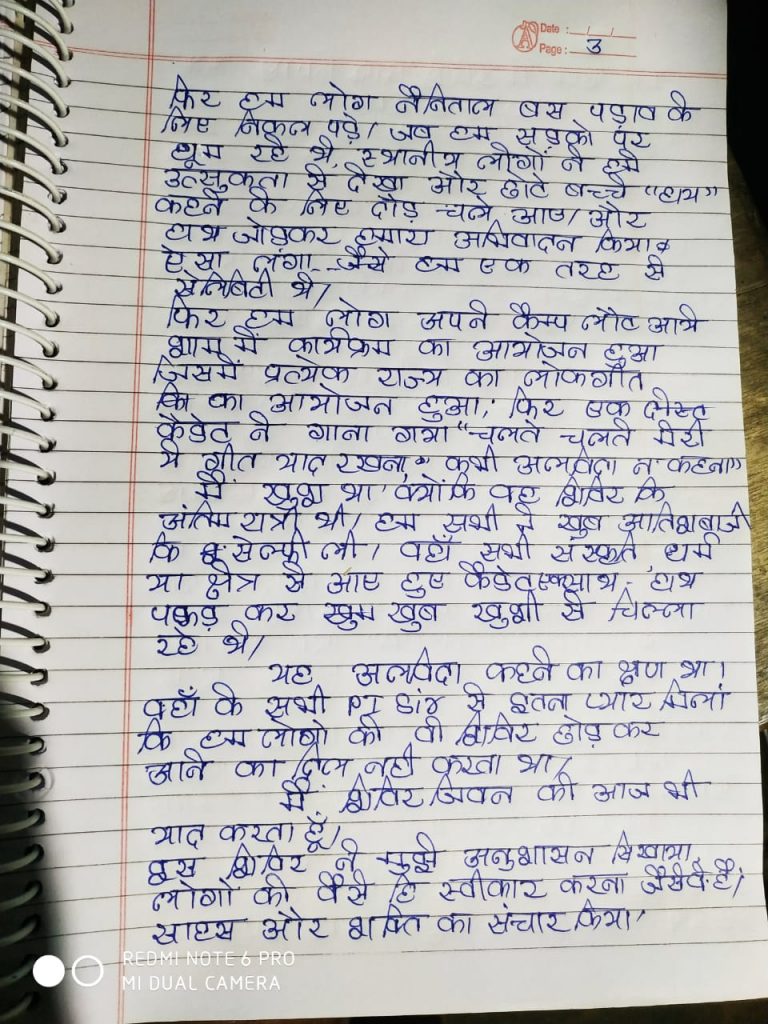 Date : / /
Page : 3
फिर हम लोग नैनिताल बस पड़ाव के
लिए निकल पड़े। जब हम सड़को पर
घूम रहे थे, स्थानीय लोगों ने हमे
उत्सुकता से देखा और छोटे बच्चे "हाय"
कहने के लिए दौड़ चले आए। और
हाथ जोड़कर हमारा अभिवादन किया।
ऐसा लगा जैसे हम एक तरह से
सेलिब्रिटी थे।
फिर हम लोग अपने कैम्प लौट आये
शाम में कार्यक्रम का आयोजन हुआ
जिसमें प्रत्येक राज्य का लोकगीत
का आयोजन हुआ, फिर एक
कैडेट ने गाना गया "चलते चलते मेरी
ये गीत याद रखना, कभी अलविदा न कहना"
मैं खुश था क्योंकि वह शिविर कि
अंतिम रात्री थी। हम सभी ने खुब आतिशबाजी
कि सेल्फी ली। वहाँ सभी संस्कृति, धर्म
या क्षेत्र से आए हुए कैडेट एकसाथ हाथ
पकड़ कर खुब खुशी से चिल्ला
रहे थे।
यह अलविदा कहने का क्षण था।
वहाँ के सभी PI Sir से इतना प्यार मिला
कि हम लोगो को वो शिविर छोड़ कर
आने का दिल नही करता था।
मैं शिविर जिवन को आज भी
याद करता हूँ।
इस शिविर ने मुझे अनुशासन सिखाया,
लोगों को वैसे हि स्वीकार करना जैसे वे है।
साहस और शक्ति का संचार किया।
REDMI NOTE 6 PRO
MI DUAL CAMERA